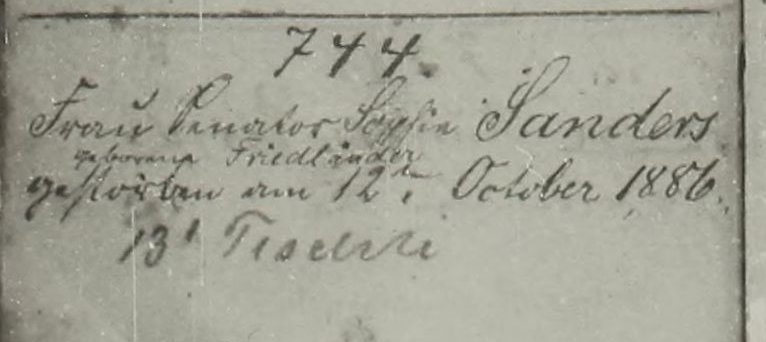 744.
Frau Senator Sophie Sanders
geborene Friedländer
gestorben am 12t. October 1886.
13' Tischri